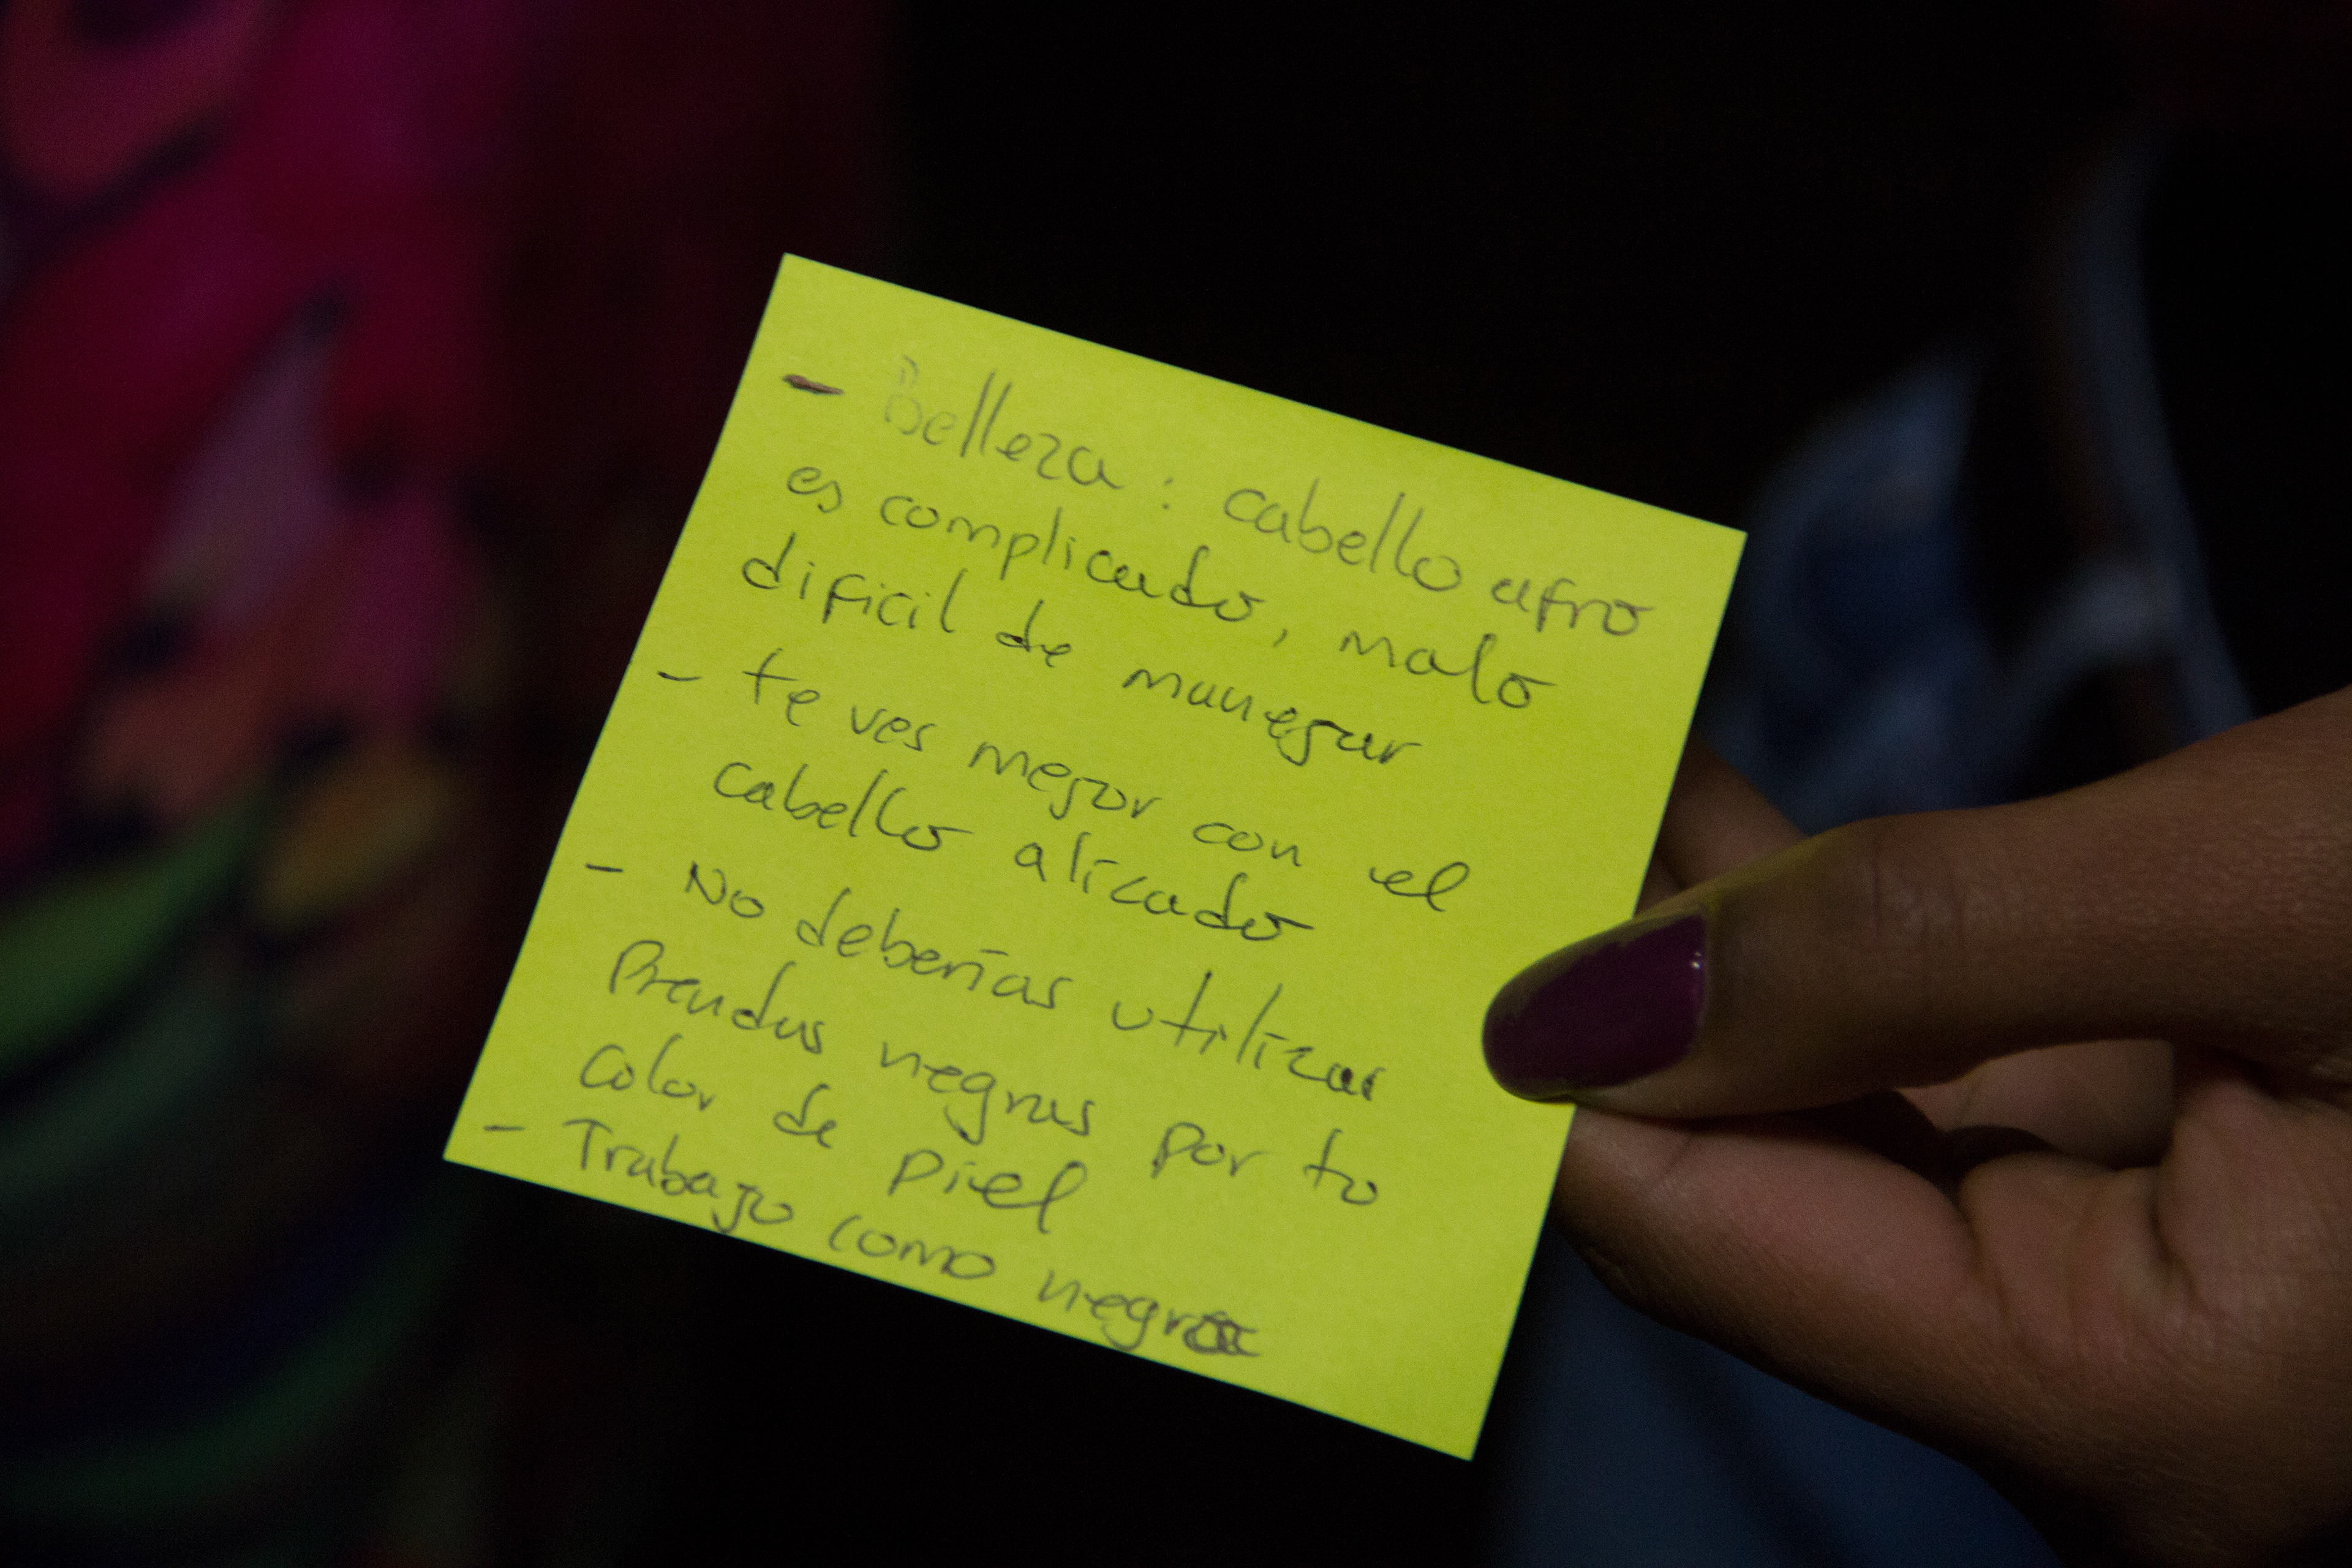 - Belleza: cabello afro
es complicado, malo
dificil de manegar
- te ves mejor con el
cabello alizado
- No deberías utilizar
Prendas negras por tu
color de piel
- Trabajo como negra